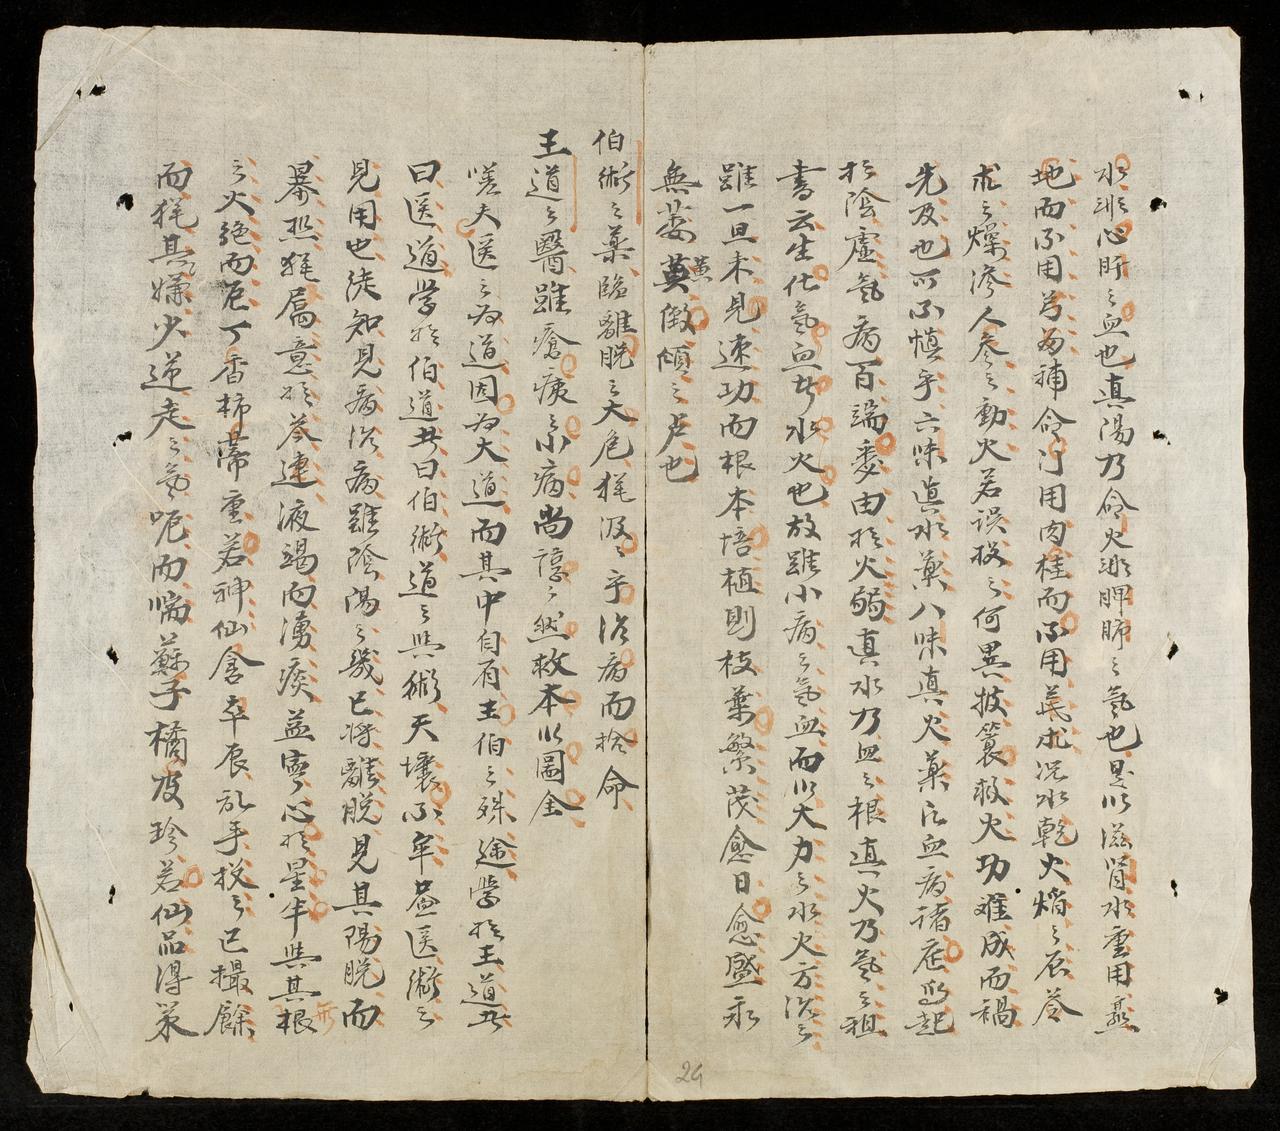 水非心肝之血也真陽乃命火非脾肺之氣也是以滋腎水重用熟
地而不用芎歸補命门用肉桂而不用芪朮况水乾火焰之辰苓
求之燥滲人參之動火若误投之何異披簑救火功难成而禍
先及也可不慎乎六味真水藥八味真火藥氣血病諸症皆起
於陰虛氣病百端委由於火弱真水乃血之根真火乃氣之祖
書云生化氣血者水火也故雖小病之氣血而以大力之水火方治之
雖一旦未見速功而根本培植則枝葉繁茂愈日愈盛永
無萎黃傾之患也
伯術之藥臨離脱之大危猶汲乎治病而拾命
王道之醫雖瘡痍之小病尚諄々然救本以圖全
嗟夫医之为道因为大道而其中自有王伯之殊途學於王道者
曰医道學於伯道者曰伯術道之與術天壤不牟盖医術之
見用也徒知見病治病雖陰陽之幾已將離脱見其陽脱而
暴热猶屬意於芩連液竭而湧痰益寧心於星半與其根
之火絕而呃丁香柿蒂重若神仙倉卒辰放手投之已撮餘
而猶其嫌少逆走之氣呃而喘蘇子橘皮珍若仙品得策
24